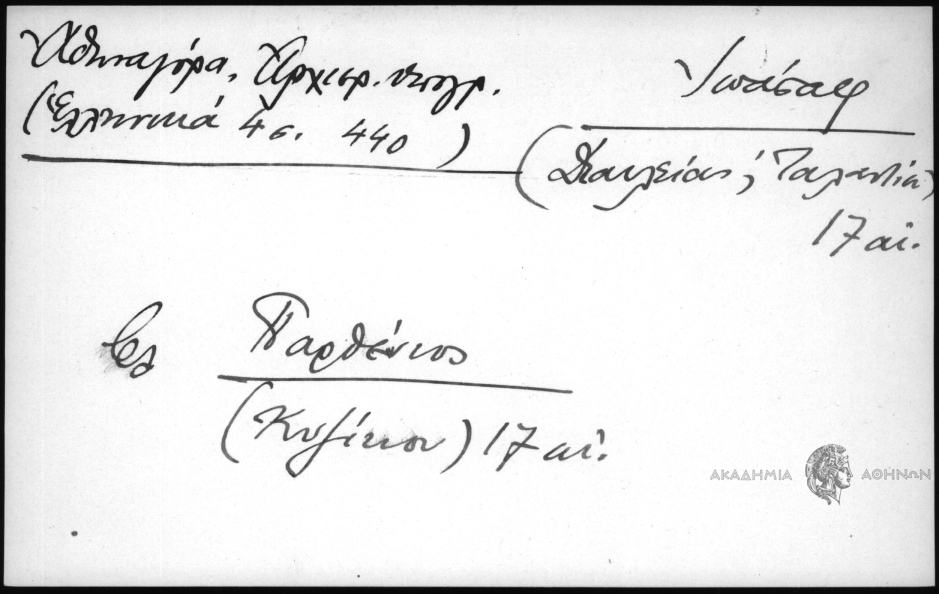 Ἀθηναγόρα, Ἀρχιερ. υπογρ.
(Ἑλληνικά 4 σ. 440)
Ἰωάσαφ
(Διαυλείας, ἤ Ταλαντίου)
17 αἰ.
βλ
Παρθένιος
(Κυζίκου) 17 αἰ.
ΑΚΑΔΗΜΙΑ ΑΘΗΝΩΝ